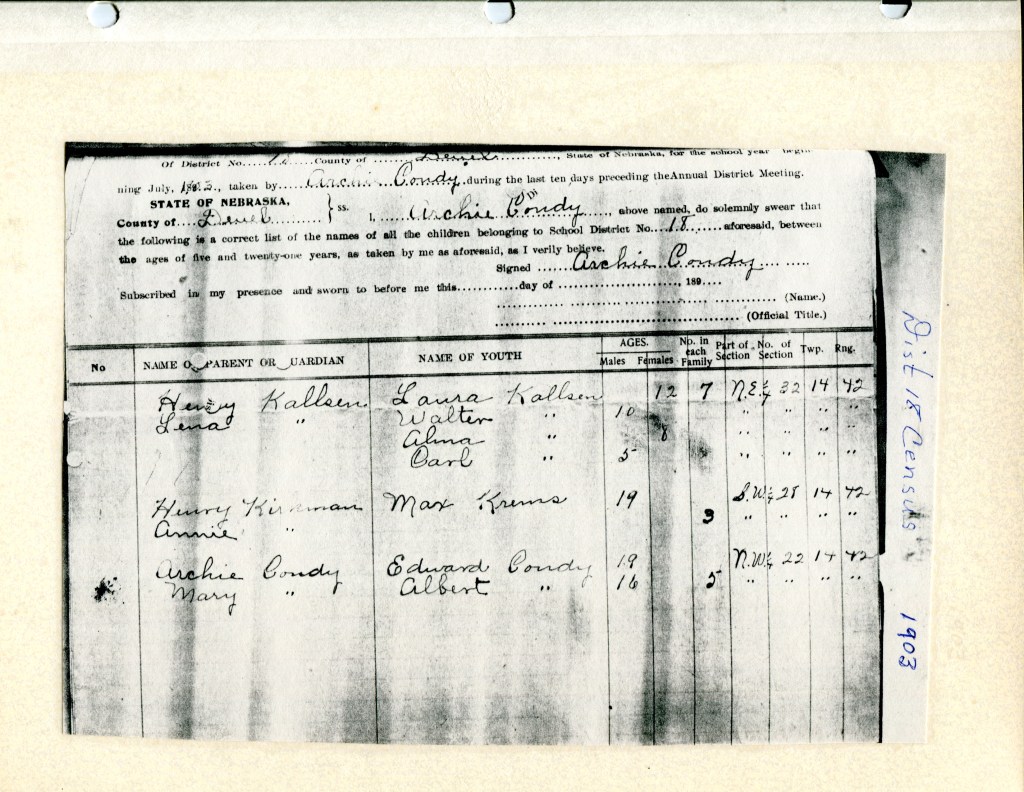 Of District No. County of Deuel, State of Nebraska, for the school year begin-
ning July, taken by Archie Condy during the last ten days preceding the Annual District Meeting.
STATE OF NEBRASKA,
County of Deuel } ss. I, Archie Condy, above named, do solemnly swear that
the following is a correct list of the names of all the children belonging to School District No. 18 aforesaid, between
the ages of five and twenty-one years, as taken by me as aforesaid, as I verily believe.
Signed Archie Condy
Subscribed in my presence and sworn to before me this ........ day of ........, 189....
(Name.)
(Official Title.)
No NAME O PARENT OR UARDIAN NAME OF YOUTH AGES. Males Females No. in each Family Part of Section No. of Section Twp. Rng.
Henry Kallsen Laura Kallsen 12 7 N.E.¼ 32 14 42
Lena " Walter " 10 " " " "
Alma " 8 " " " "
Carl " 5 " " " "
Henry Kirkman Max Krems 19 S.W.¼ 28 14 42
Annie " 3 " " " "
Archie Condy Edward Condy 19 N.W.¼ 22 14 42
Mary " Albert " 16 5 " " " "
Dist 18 Census
1903